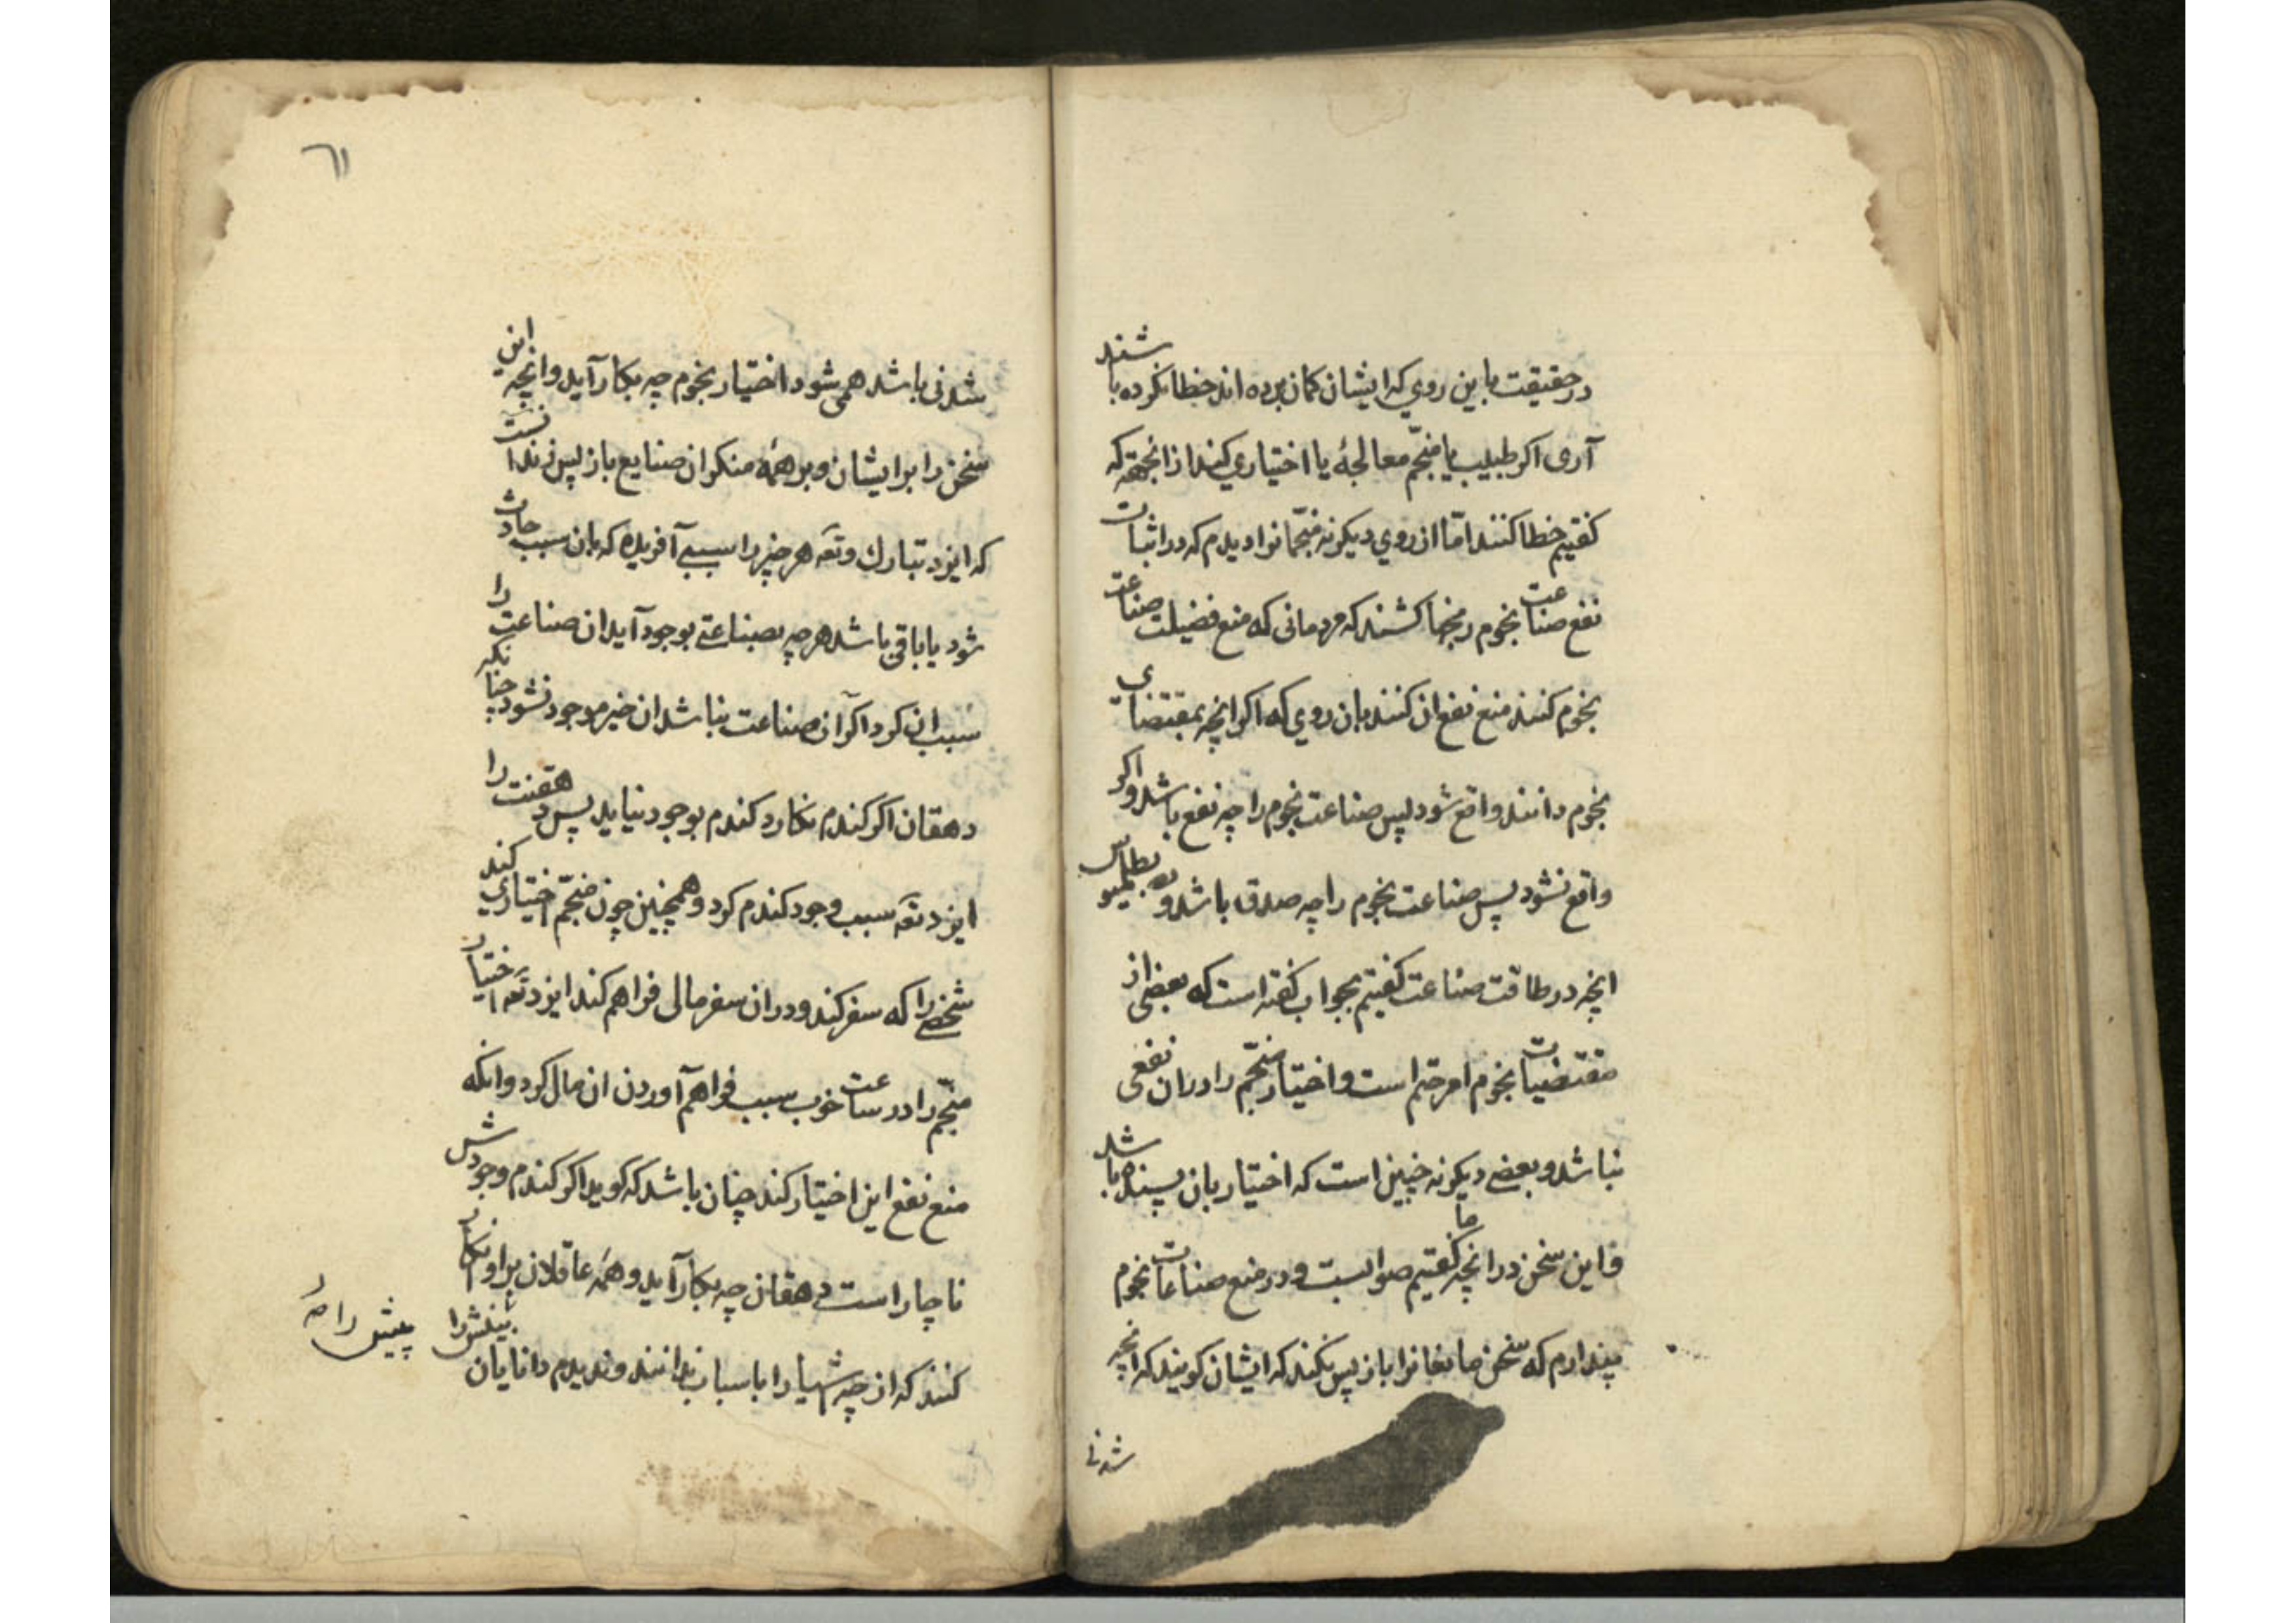 در حقیقت باین روی که ایشان کمان برده اند خطا نکرده باشند
آری اکر طبیب یا منجّم معالجهٔ یا اختیاری کند از انجهة که
کفتیم خطا کنند امّا از روی دیکر نه منجّمانرا دیدم که در اثبات
نفع صناعت نجوم رنجها کشند که مردمانی که منع فضیلت صناعت
نجوم کنند منع نفع ان کنند بان روی که اکر انچه بمقتضای
نجوم دانند واقع شود پس صناعت نجوم را چه نفع باشد و اکر
واقع نشود پس صناعت نجوم را چه صدق باشد و بطلمیوس
انچه در طاقت صناعت کفتیم بجواب کفته است که بعضی از
مقتضیات نجوم امر حتم است و اختیار منجّم را دران نفعی
نباشد و بعضی دیکر نه چنین است که اختیار بان پسنده باشد
و این سخن در انچه ما کفتیم صوابست و در منع صناعات نجوم
پندارم که سخن مانعانرا باز پس نکند که ایشان کویند که انچه
شدنی
٦١
شدنی باشد همی شود اختیار نجوم چه بکار آید و انچه این
سخن را بر ایشان و بر همهٔ منکران صنایع باز پس زند انست
که ایزد تبارك وتعه هر چیز را سببی آفریده که بان سبب حادث
شود یا باقی باشد هر چه بصناعتی بوجود آید ان صناعت را
سبب ان کرد اکر آن صناعت نباشد ان چیز موجود نشود چنانکه
دهقان اکر کندم نکارد کندم بوجود نیاید پس دهقنت را
ایزد تعه سبب وجود کندم کرد و همچنین چون منجّم اختیاری کند
شخصی را که سفر کند و دران سفر مالی فراهم کند ایزد تعه اختیار
منجّم را در ساعت خوب سبب فراهم آوردن ان مال کرد و انکه
منع نفع این اختیار کند چنان باشد که کوید اکر کندم وجودش
ناچار است دهقان چه بکار آید و همهٔ عاقلان بر او انکار
کنند که از چه شیها را با سباب ندانند و ندیدم دانایان
بینش را
پیش را